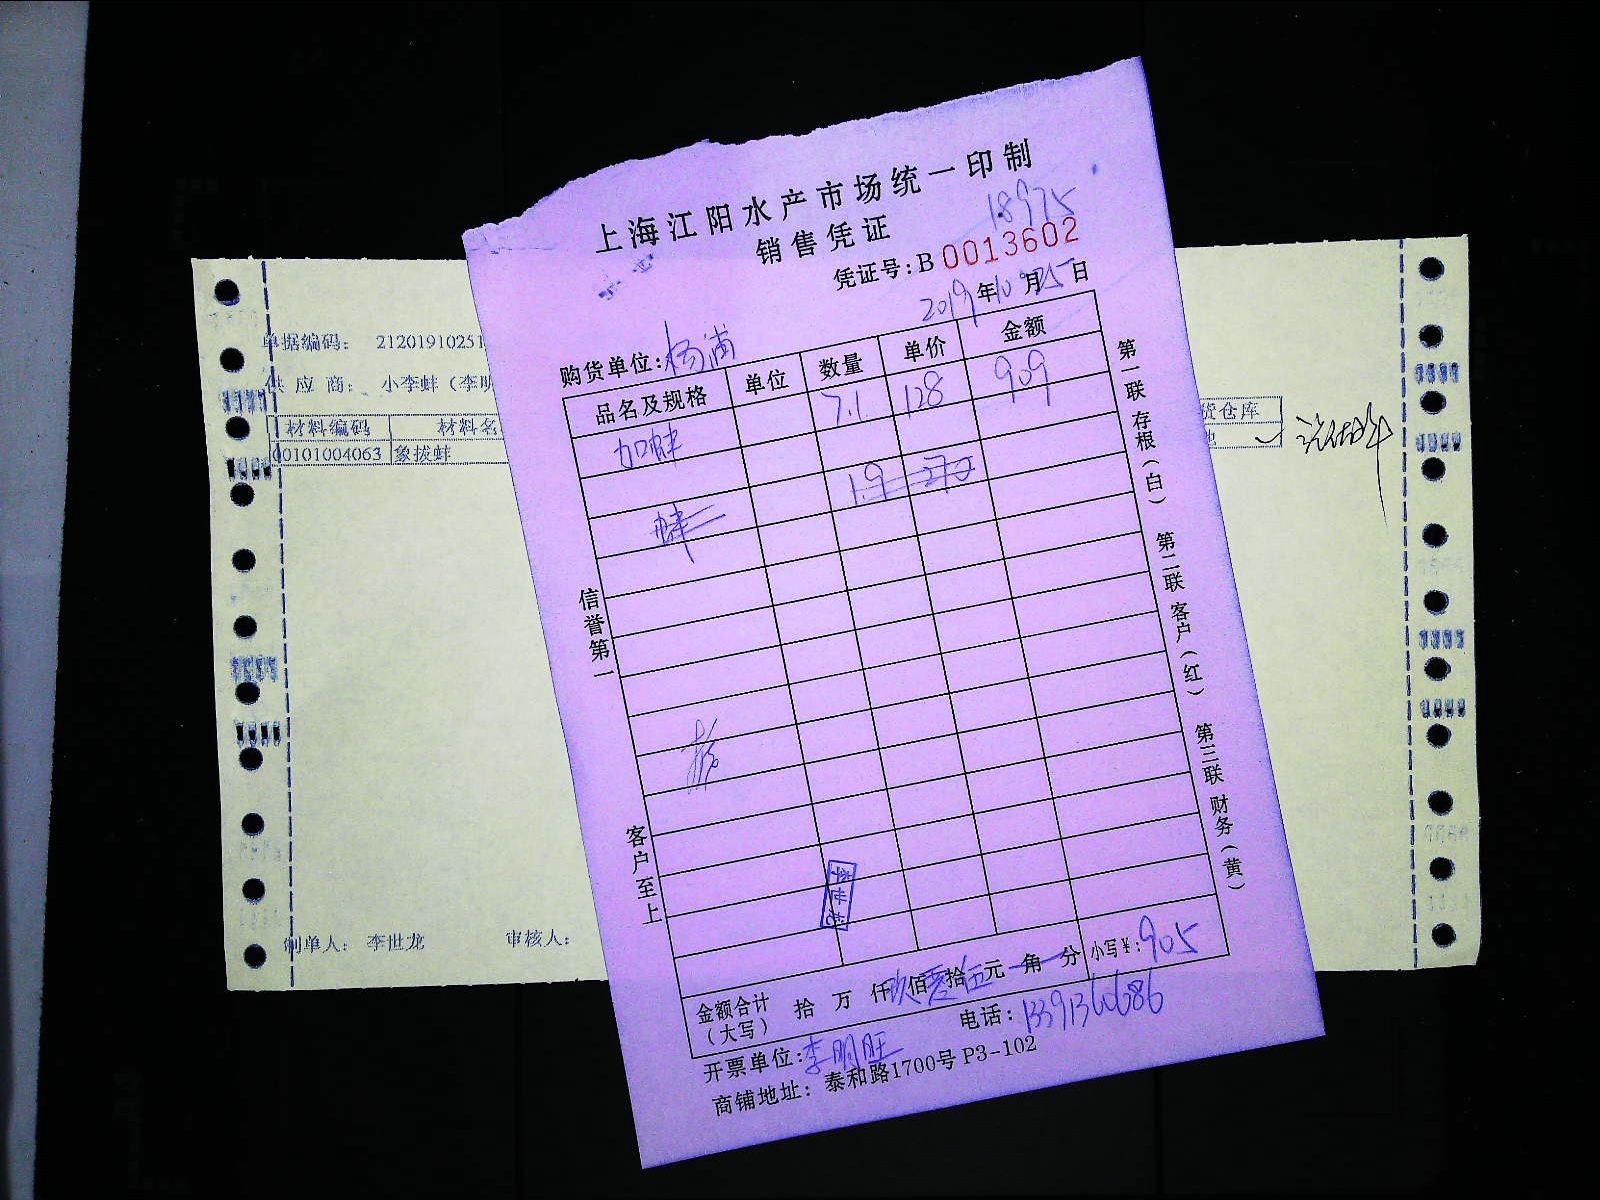 上海江阳水产市场统一印制
销售凭证
18975
凭证号:B 0013602
2019年10月25日
购货单位:杨浦
品名及规格 单位 数量 单价 金额
加蚌 7.1 128 909
蚌 1.9 270
信誉第一
客户至上
第一联 存根(白) 第二联 客户(红) 第三联 财务(黄)
金额合计(大写) 拾 万 仟 玖佰零拾伍元 角 分 小写¥:905
开票单位:李明旺 电话:13391366686
商铺地址: 泰和路1700号 P3-102
单据编码: 21201910251
供应商: 小李蚌(李明
材料编码 材料名
00101004063 象拔蚌
货仓库
制单人: 李世龙 审核人: